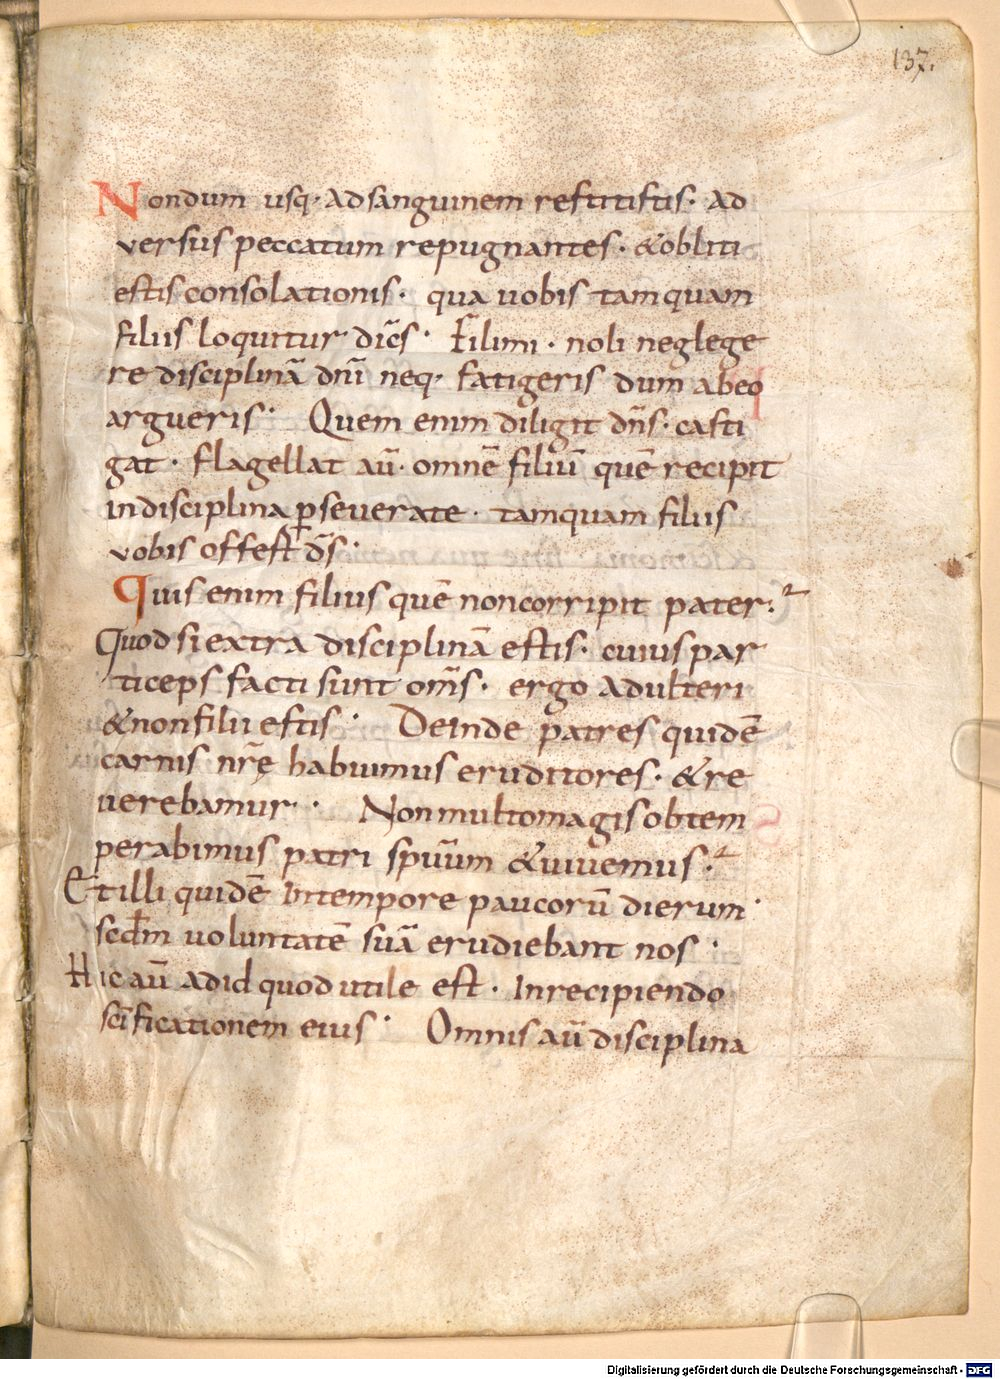 137.
Nondum usq· adsanguinem restitistis· ad
versus peccatum repugnantes· &obliti
estis consolationis· qua uobis tamquam
filiis loquitur dic̄s· Filimi· noli neglege
re disciplinā dn̄i neq· fatigeris dum abeo
argueris· Quem enim diligit dn̄s· casti
gat· flagellat aū· omnē filiū quē recipit
indisciplina ꝑseuerate· tamquam filiis
vobis offest d̄s·
Quis enim filius quē noncorripit pater·
Quod si extra disciplinā estis· cuius par
ticeps facti sunt om̄s· ergo adulteri
&nonfilii estis· Deinde patres quidē
carnis nr̄ę habuimus eruditores· &re
uerebamur· Non multo magis obtem
perabimus patri spūum &uiuemus·
Et illi quidē Intempore paucorū dierum·
secd̄m uoluntatē suā erudiebant nos·
Hic aū adid quod utile est· Inrecipiendo
sc̄ificationem eius· Omnis aū disciplina
Digitalisierung gefördert durch die Deutsche Forschungsgemeinschaft - DFG